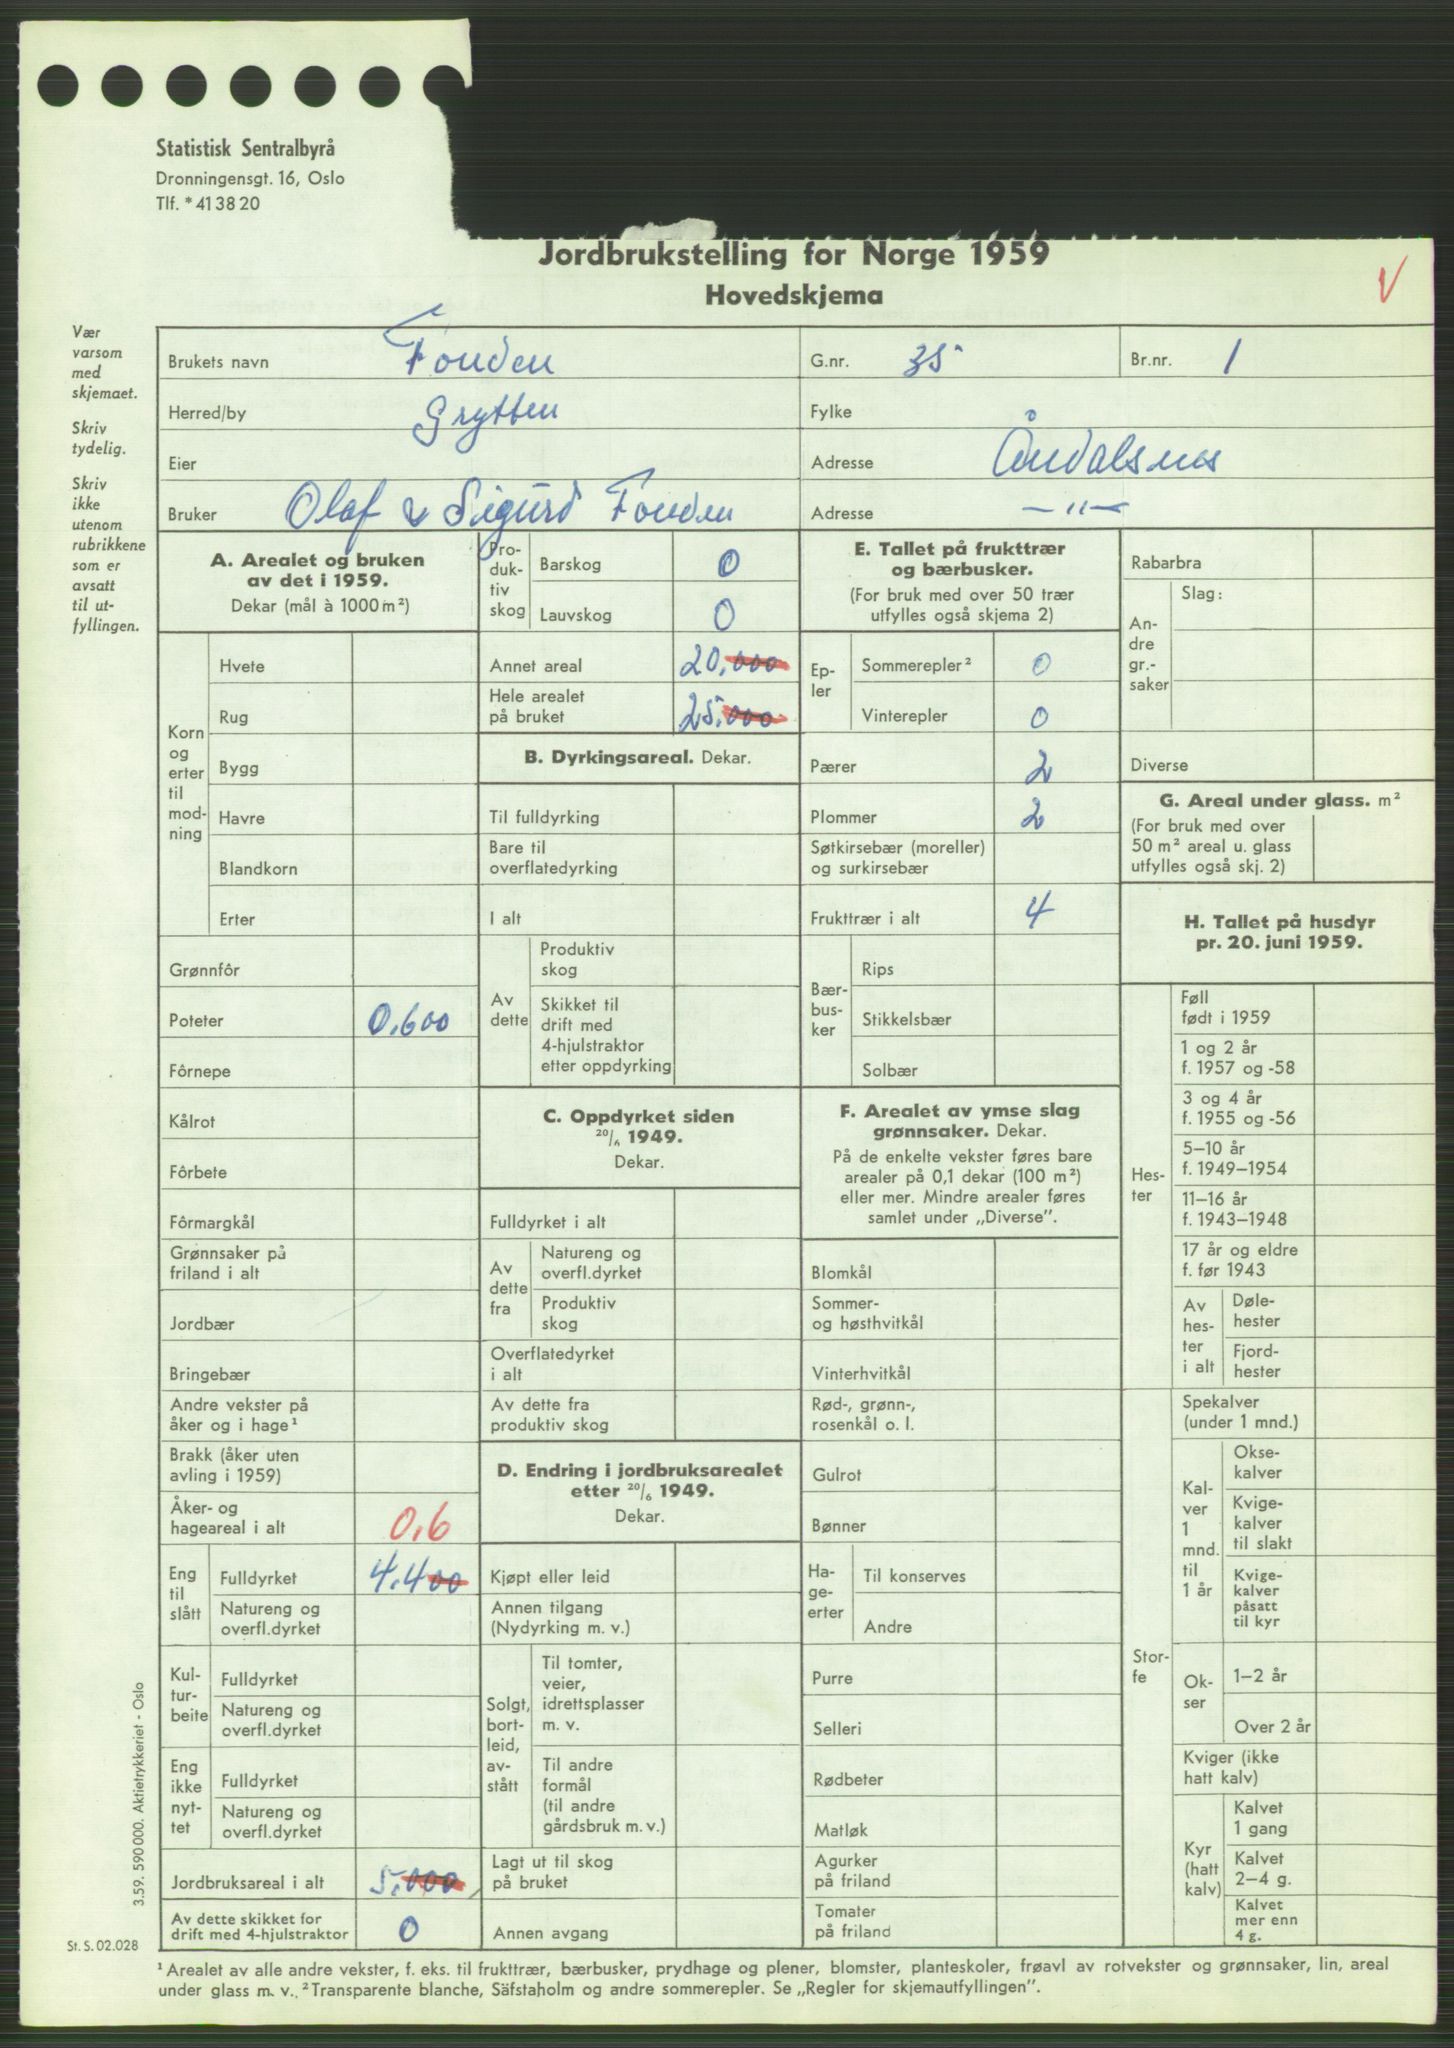 Statistisk Sentralbyrå
Dronningensgt. 16, Oslo
Tlf. * 41 38 20
Jordbrukstelling for Norge 1959
Hovedskjema
V
Vær
varsom
med
skjemaet.
Skriv
tydelig.
Skriv
ikke
utenom
rubrikkene
som er
avsatt
til ut-
fyllingen.
Brukets navn Fonden G.nr. 35 Br.nr. 1
Herred/by Grytten Fylke
Eier Adresse Åndalsnes
Bruker Olaf & Sigurd Fonden Adresse —"—
A. Arealet og bruken
av det i 1959.
Dekar (mål à 1000 m²)
Korn
og
erter
til
mod-
ning
Hvete
Rug
Bygg
Havre
Blandkorn
Erter
Grønnfôr
Poteter 0.600
Fôrnepe
Kålrot
Fôrbete
Fôrmargkål
Grønnsaker på
friland i alt
Jordbær
Bringebær
Andre vekster på
åker og i hage¹
Brakk (åker uten
avling i 1959)
Åker- og
hageareal i alt 0,6
Eng
til
slått
Fulldyrket 4.400
Natureng og
overfl.dyrket
Kul-
tur-
beite
Fulldyrket
Natureng og
overfl.dyrket
Eng
ikke
nyt-
tet
Fulldyrket
Natureng og
overfl.dyrket
Jordbruksareal i alt 5.000
Av dette skikket for
drift med 4-hjulstraktor 0
Pro-
duk-
tiv
skog
Barskog 0
Lauvskog 0
Annet areal 20.000
Hele arealet
på bruket 25.000
B. Dyrkingsareal. Dekar.
Til fulldyrking
Bare til
overflatedyrking
I alt
Av
dette
Produktiv
skog
Skikket til
drift med
4-hjulstraktor
etter oppdyrking
C. Oppdyrket siden
20/6 1949.
Dekar.
Fulldyrket i alt
Av
dette
fra
Natureng og
overfl.dyrket
Produktiv
skog
Overflatedyrket
i alt
Av dette fra
produktiv skog
D. Endring i jordbruksarealet
etter 20/6 1949.
Dekar.
Kjøpt eller leid
Annen tilgang
(Nydyrking m. v.)
Solgt,
bort-
leid,
av-
stått
Til tomter,
veier,
idrettsplasser
m. v.
Til andre
formål
(til andre
gårdsbruk m. v.)
Lagt ut til skog
på bruket
Annen avgang
E. Tallet på frukttrær
og bærbusker.
(For bruk med over 50 trær
utfylles også skjema 2)
Ep-
ler
Sommerepler² 0
Vinterepler 0
Pærer 2
Plommer 2
Søtkirsebær (moreller)
og surkirsebær
Frukttrær i alt 4
Bær-
bus-
ker
Rips
Stikkelsbær
Solbær
F. Arealet av ymse slag
grønnsaker. Dekar.
På de enkelte vekster føres bare
arealer på 0,1 dekar (100 m²)
eller mer. Mindre arealer føres
samlet under „Diverse”.
Blomkål
Sommer-
og høsthvitkål
Vinterhvitkål
Rød-, grønn-,
rosenkål o. l.
Gulrot
Bønner
Ha-
ge-
erter
Til konserves
Andre
Purre
Selleri
Rødbeter
Matløk
Agurker
på friland
Tomater
på friland
Rabarbra
An-
dre
gr.-
saker
Slag:
Diverse
G. Areal under glass. m²
(For bruk med over
50 m² areal u. glass
utfylles også skj. 2)
H. Tallet på husdyr
pr. 20. juni 1959.
Hes-
ter
Føll
født i 1959
1 og 2 år
f. 1957 og -58
3 og 4 år
f. 1955 og -56
5–10 år
f. 1949–1954
11–16 år
f. 1943–1948
17 år og eldre
f. før 1943
Av
hes-
ter
i alt
Døle-
hester
Fjord-
hester
Stor-
fe
Spekalver
(under 1 mnd.)
Kal-
ver
1
mnd.
til
1 år
Okse-
kalver
Kvige-
kalver
til slakt
Kvige-
kalver
påsatt
til kyr
Ok-
ser
1–2 år
Over 2 år
Kviger (ikke
hatt kalv)
Kyr
(hatt
kalv)
Kalvet
1 gang
Kalvet
2–4 g.
Kalvet
mer enn
4 g.
3.59. 590 000. Aktietrykkeriet - Oslo
St. S. 02.028
¹ Arealet av alle andre vekster, f. eks. til frukttrær, bærbusker, prydhage og plener, blomster, planteskoler, frøavl av rotvekster og grønnsaker, lin, areal
under glass m. v. ² Transparente blanche, Säfstaholm og andre sommerepler. Se „Regler for skjemautfyllingen”.